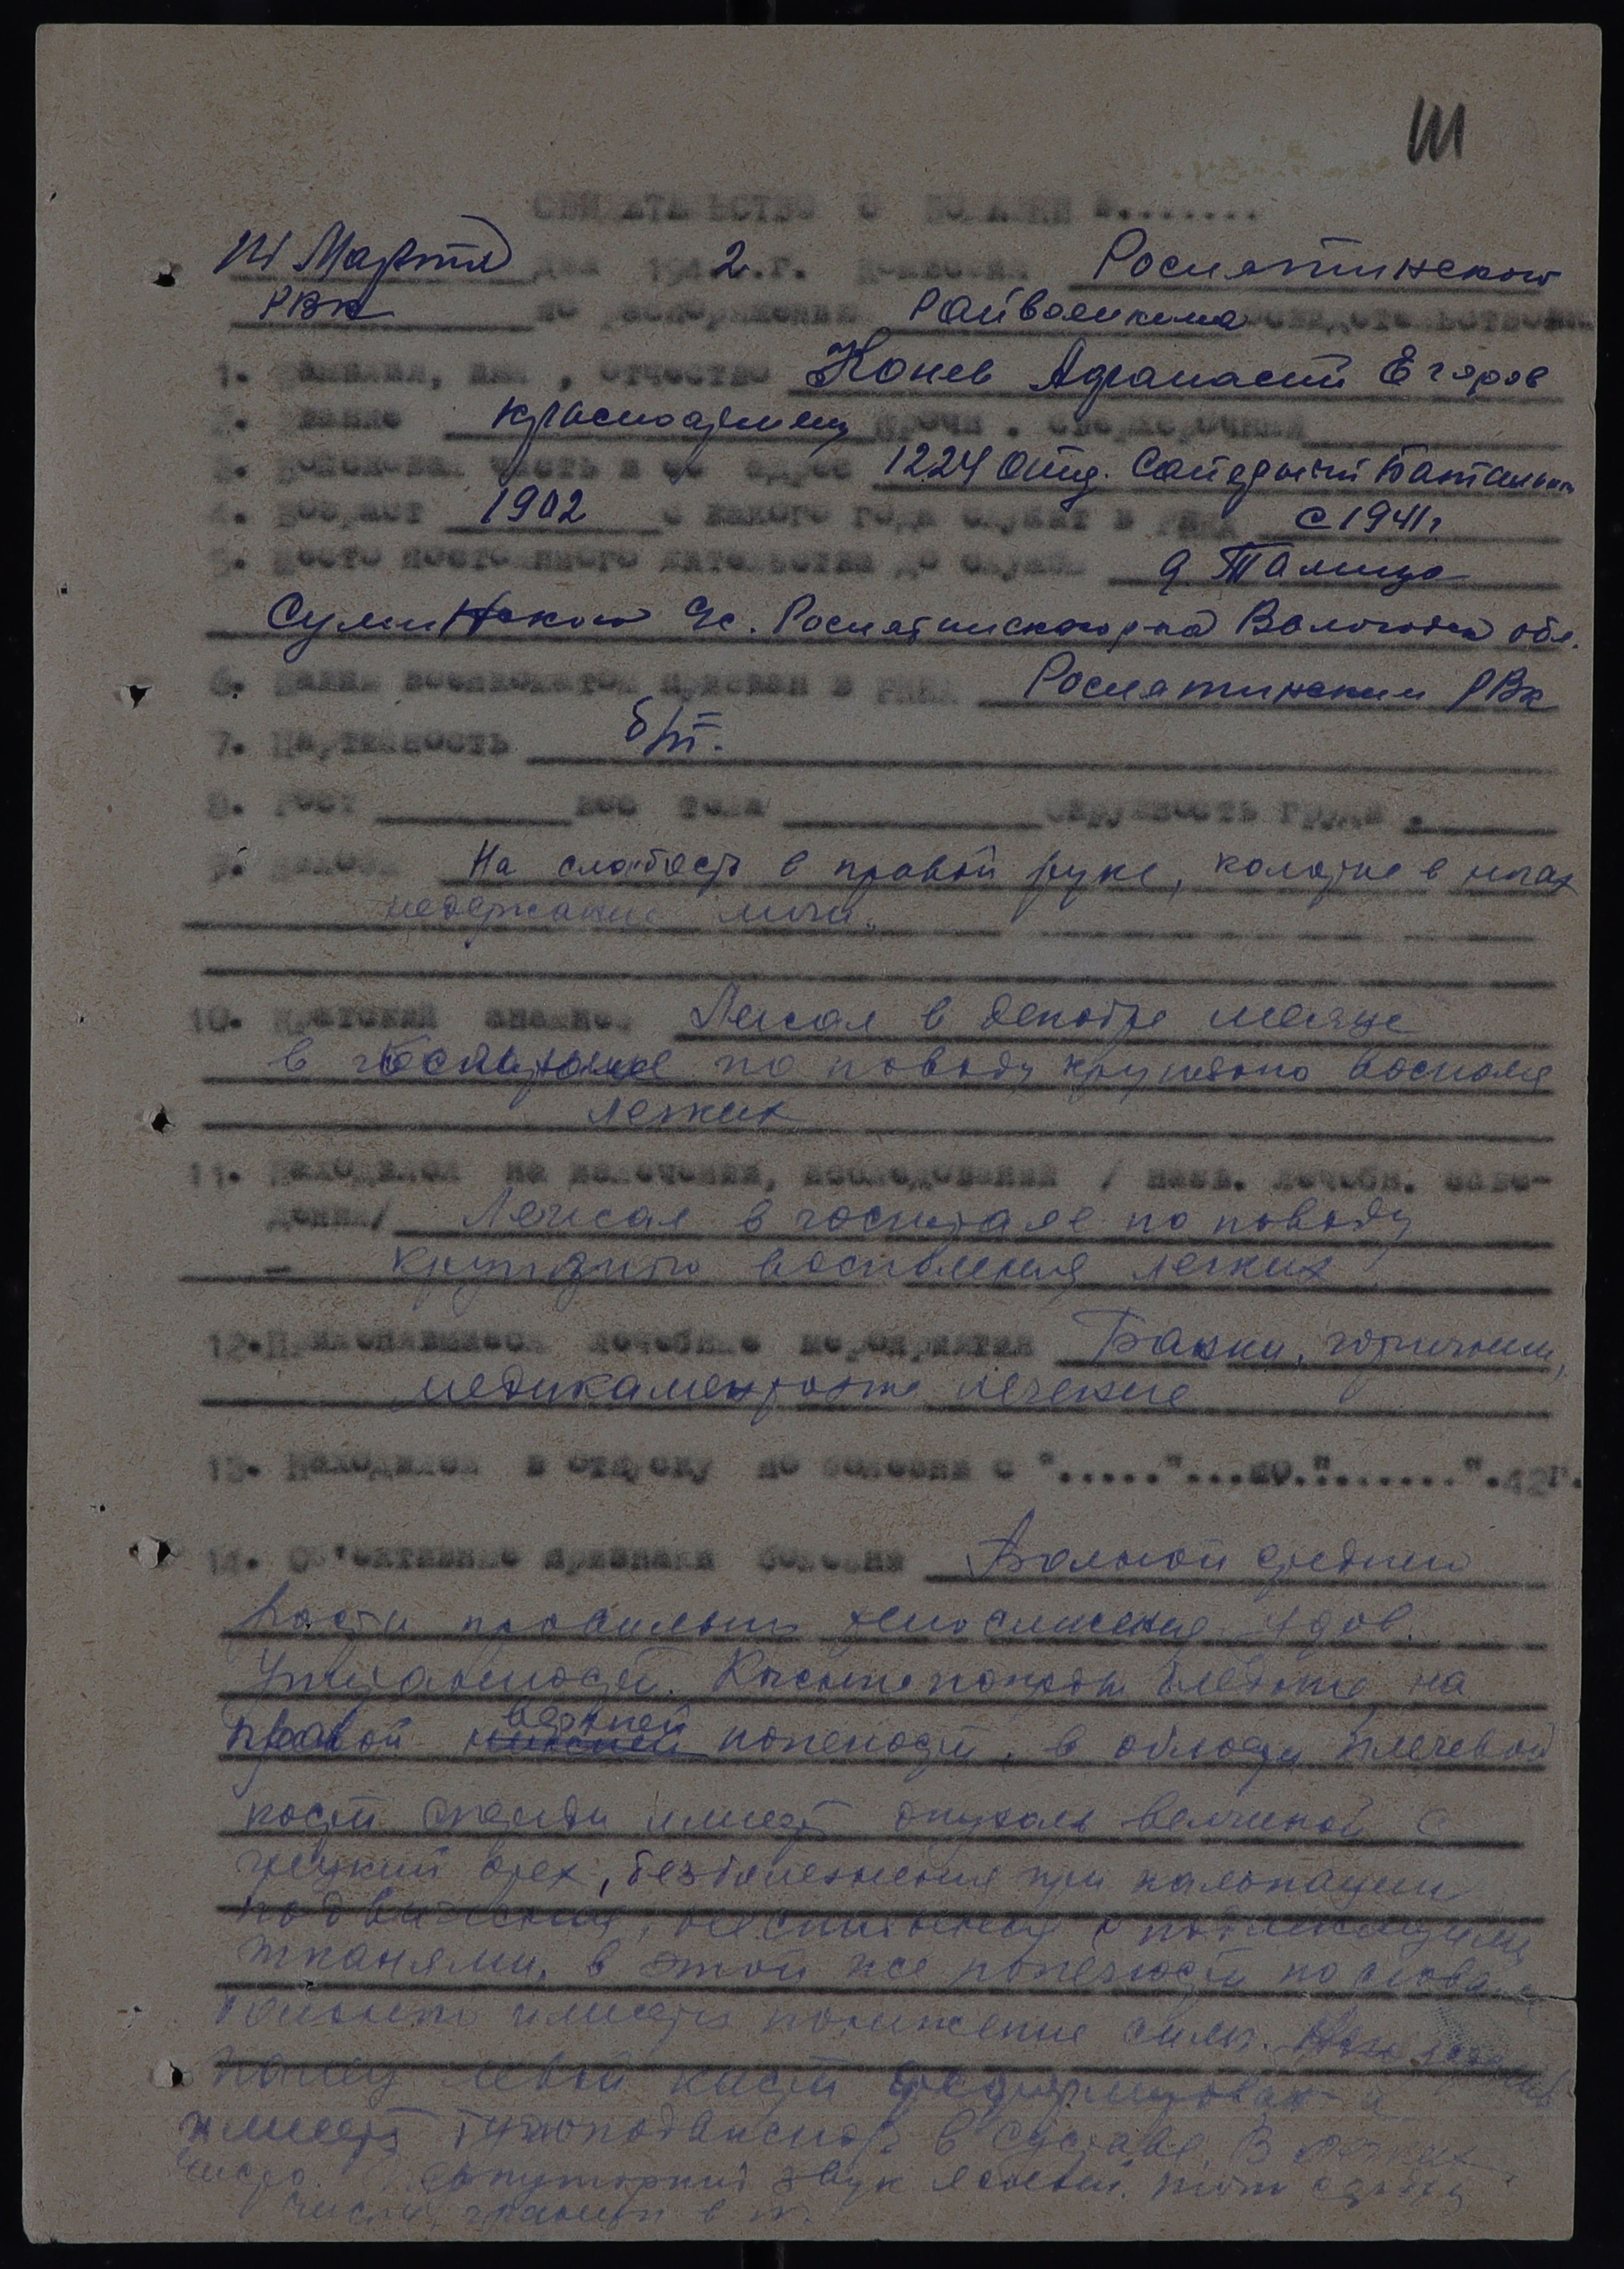 Ш
СВИДЕТЕЛЬСТВО О БОЛЕЗНИ №.......
Марта дня 1942.г. Рослятинского
РВК по распоряжению Райвоенкома
1. Фамилия, имя, отчество Конев Афанасий Егоров
2. Звание красноармеец
3. Войсковая часть и ее адрес 1224 Отд. Батальон
4. Возраст 1902 с какого года служит в РККА с 1941г
5. Место постоянного жительства до службы д Талица
Суминского с/с. Рослятинского р-на Вологодск обл.
6. Каким военкоматом призван в РККА Рослятинским РВк
7. Партийность б/п.
8. Рост вес тела окружность груди
9. Жалобы На слабость в правой руке, в ногах
недержание мочи.
10. Краткий анамнез Лежал в декабре месяце
в госпитале по поводу крупозного воспален
легких
11. Находился на излечении, исследовании / назв. лечебн. заве-
дения/ Лежал в госпитале по поводу
- крупозного воспаления легких
12. Применявшиеся лечебные мероприятия Банки, горчичники,
медикаментозное лечение
13. Находился в отпуску по болезни с "....."...по."......".42г.
14. Об'ективные признаки болезни Больной среднего
роста правильного телосложения удов.
упитанности. Кожные покровы бледные, на
правой верхней конечности, в области плечевой
кости имеет опухоль величиной с
грецкий орех, безболезненная при пальпации
подвижная, не спаянная с подлежащими
тканями. в этой же конечности по словам
больного имеется понижение силы.
палец левой кисти деформирован и
имеет тугоподвижность в суставе. В легких
звук ясный. тоны сердца
чисты, границы в н.